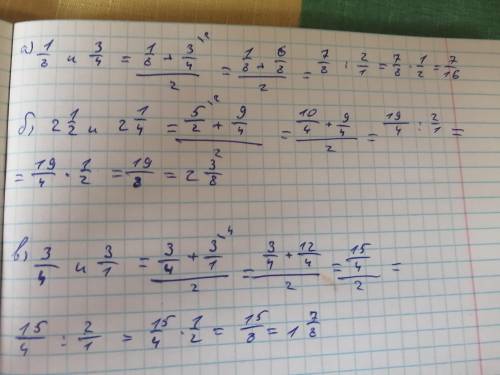 а) 1/8 и 3/4 = (1/8 + 3/4^{\2})/2 = (1/8 + 6/8)/2 = 7/8 : 2/1 = 7/8 · 1/2 = 7/16
б) 2 1/2 и 2 1/4 = (5/2^{\2} + 9/4)/2 = (10/4 + 9/4)/2 = 19/4 : 2/1 =
= 19/4 · 1/2 = 19/8 = 2 3/8
в) 3/4 и 3/1 = (3/4 + 3/1^{\4})/2 = (3/4 + 12/4)/2 = (15/4)/2 =
15/4 : 2/1 = 15/4 · 1/2 = 15/8 = 1 7/8